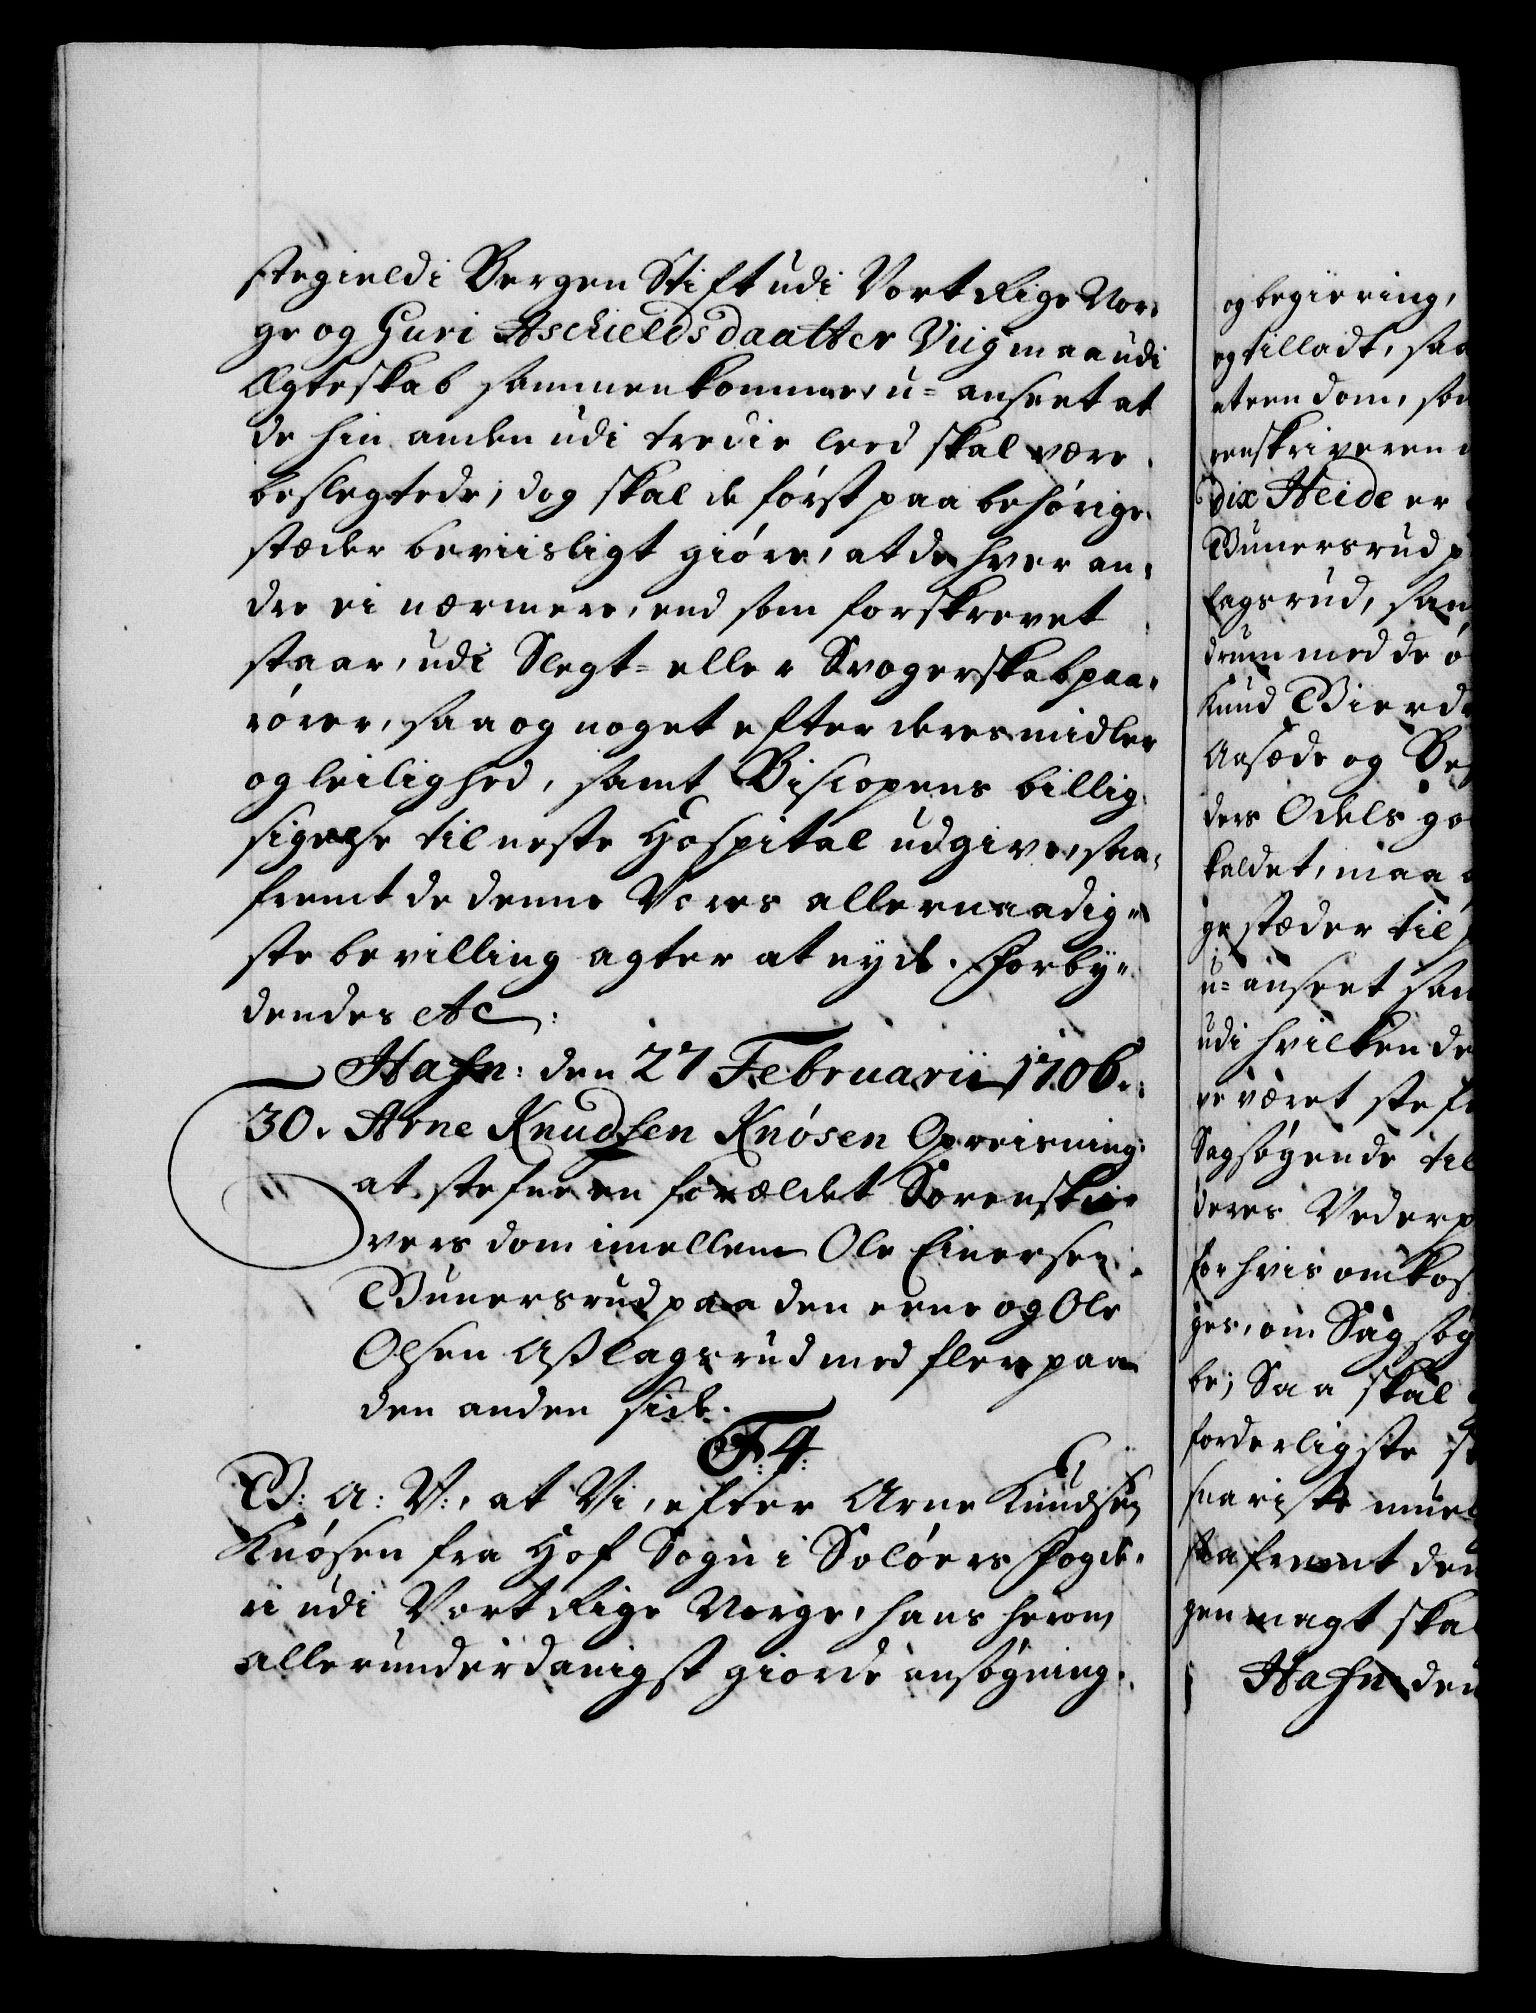 stegield i Bergen Stift udi Vort Rige Nor-
ge og Guri Aschieldsdaatter Viig maa udi
Egteskab sammenkomme, u-anseet at
de hin anden udi tredie leed skal være
beslegtede; dog skal de først paa behørige
stæder beviisligt giøre, at de hver an-
dre ei nærmere, end som forskrevet
staar, udi Slegt- eller Svogerskab paa-
rører, saa og noget efter deres midler
og leilighed, samt Biscopens billig
sigelse til neste Hospital udgive, saa-
fremt de denne Vores allernaadig-
ste bevilling agter at nyde. Forby-
dendes etc:
Hafn: den 27 Februarii 1706.
30. Arne Knudsen Knøsen Opreisning
at stefne en forældet Sorenskri-
vers dom imellem Ole Einersen
Bunersrud paa den eene og Ole
Olsen Aslagsrud med flere paa
den anden side.
F. 4.
G: A: V:, at Vi, efter Arne Knudsen
Knøsen fra Hof Sogn i Soløers Fogde-
ri udi Vort Rige Norge, hans herom
allerunderdanigst giorde ansøgning
og begiering,
og tilladt, saa
at een dom, som
renskriveren
dix Heide er
Bunersrud p
lagsrud, sam
drum med de ø
Knud Bierd
Aasæde og Be
ders Odels go
kaldet, maa
ge stæder til
u-anseet saa
udi hvilken de
re været stef
Sagsøgende til
deres Vederp
for hvis omkos
ges, om Sagsøg
be; Saa skal
forderligste st
snariste muel
saafremt den
gen magt skal
Hafn den